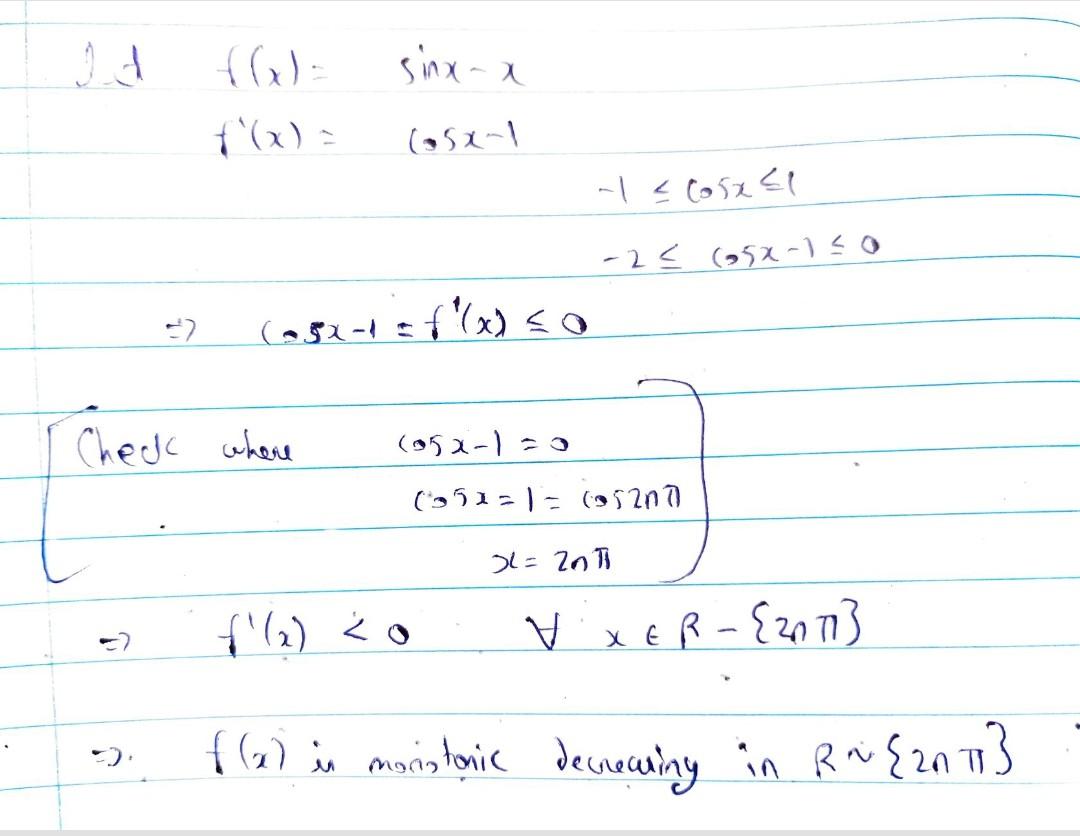 Let f(x) = sinx - x
f'(x) = cosx-1
-1 ≤ cosx ≤ 1
-2 ≤ cosx-1 ≤ 0
=> cosx-1 = f'(x) ≤ 0
Check where cosx-1 = 0
cosx = 1 = cos2nπ
x = 2nπ
=> f'(x) < 0 ∀ x ∈ R - {2nπ}
=> f(x) is monotonic decreasing in R ~ {2nπ}